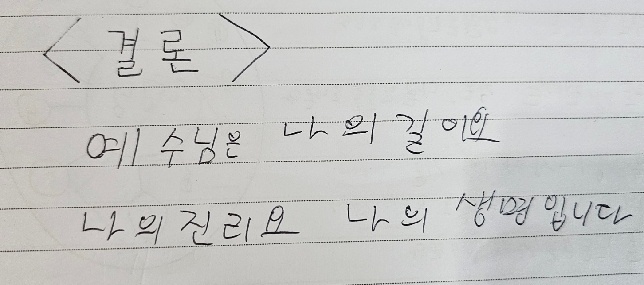 <결론>
예수님은 나의 길이요
나의 진리요 나의 생명입니다